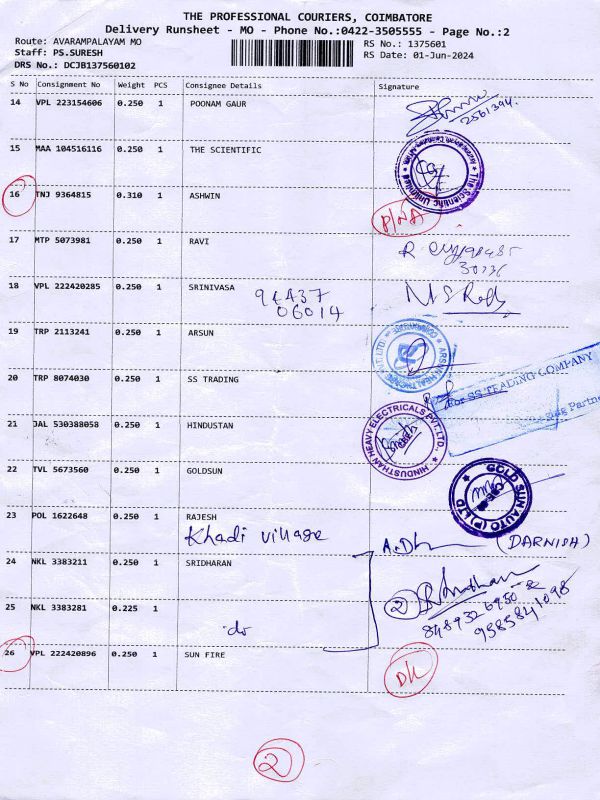 THE PROFESSIONAL COURIERS, COIMBATORE
Delivery Runsheet - MO - Phone No.:0422-3505555 - Page No.:2
Route: AVARAMPALAYAM MO
RS No.: 1375601
Staff: PS.SURESH
RS Date: 01-Jun-2024
DRS No.: DCJB137560102
S No Consignment No Weight PCS Consignee Details Signature
14 VPL 223154606 0.250 1 POONAM GAUR
2561394.
15 MAA 104516116 0.250 1 THE SCIENTIFIC
16 TNJ 9364815 0.310 1 ASHWIN
P/NA
17 MTP 5073981 0.250 1 RAVI
18 VPL 222420285 0.250 1 SRINIVASA
94437
06014
19 TRP 2113241 0.250 1 ARSUN
20 TRP 8074030 0.250 1 SS TRADING
For SS TRADING COMPANY
21 JAL 530388058 0.250 1 HINDUSTAN
HINDUSTHAN HEAVY ELECTRICALS PVT.LTD.
22 TVL 5673560 0.250 1 GOLDSUN
GOLD SUN AUTO (P) LTD
23 POL 1622648 0.250 1 RAJESH
Khadi village
(DARNISH)
24 NKL 3383211 0.250 1 SRIDHARAN
25 NKL 3383281 0.225 1
do
2
26 VPL 222420896 0.250 1 SUN FIRE
DL
2